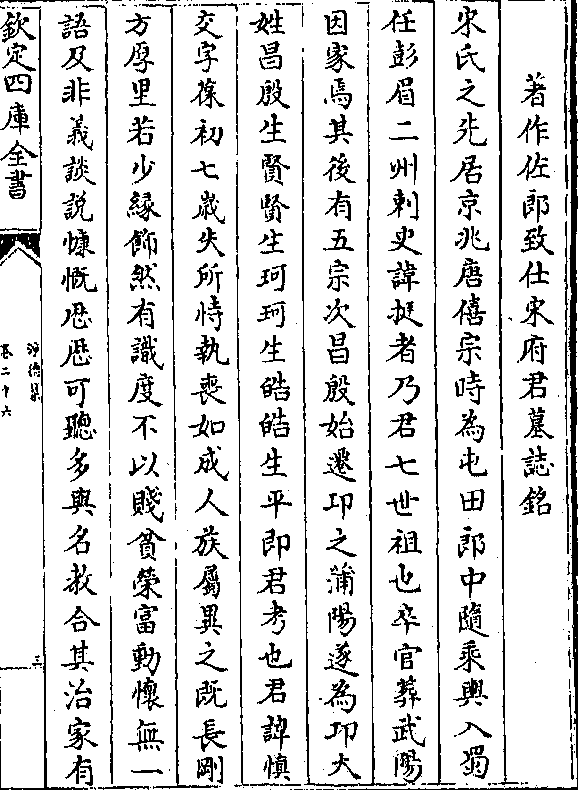 著作佐郎致仕宋府君墓誌銘
宋氏之先居京兆唐僖宗時為屯田郎中隨乘輿入蜀
任彭眉二州刺史諱挺者乃君七世祖也卒官葬武陽
因家焉其後有五宗次昌殷始遷邛之蒲陽遂為邛大
姓昌殷生賢賢生珂珂生皓皓生平即君考也君諱慎
交字葆初七歲失所恃執喪如成人族屬異之既長剛
方厚里若少緣飾然有識度不以賤貧榮富動懷無一
語及非義談説慷慨歴歴可聽多與名教合其治家有
欽定四庫全書
淨德集
卷二十六
三